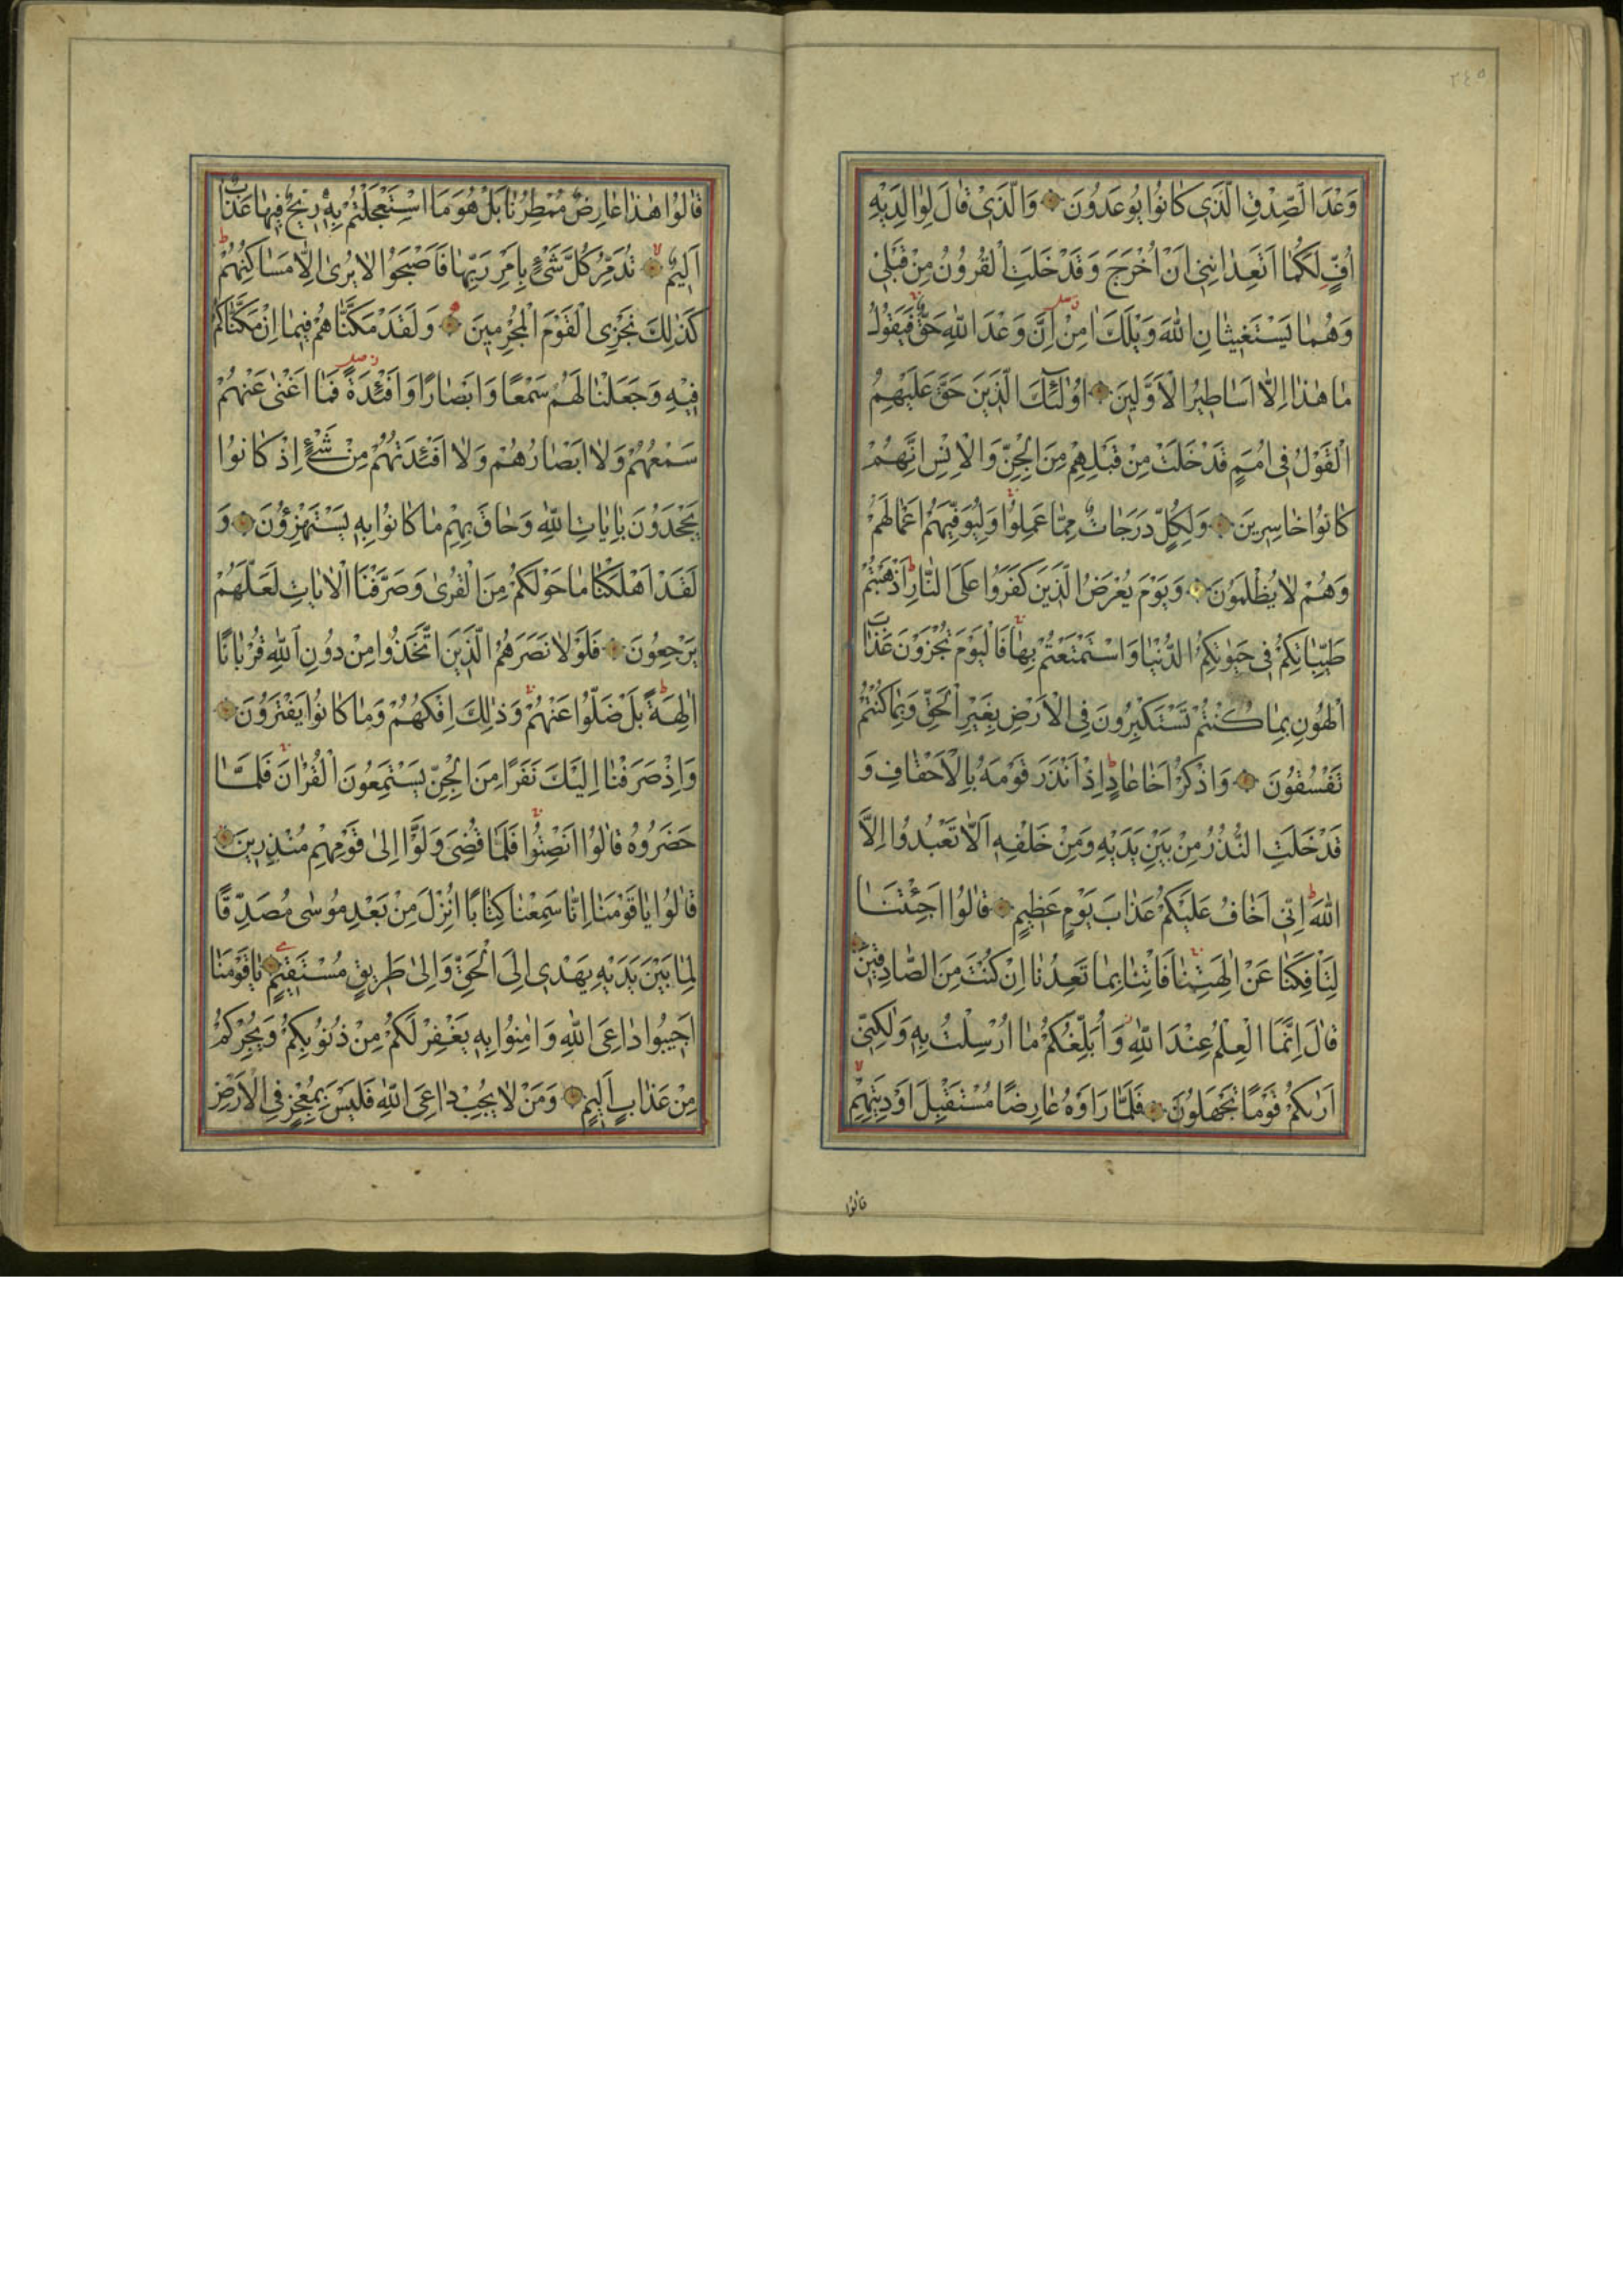 ٢٤٥
وَعْدَ الصِّدْقِ الَّذِي كَانُوا يُوعَدُونَ وَالَّذِي قَالَ لِوَالِدَيْهِ
اُفٍّ لَكُمَا اَتَعِدَانِنِي اَنْ اُخْرَجَ وَقَدْ خَلَتِ الْقُرُونُ مِنْ قَبْلِي
وَهُمَا يَسْتَغِيثَانِ اللهَ وَيْلَكَ اٰمِنْ اِنَّ وَعْدَ اللهِ حَقٌّ فَيَقُولُ
مَا هٰذَا اِلَّا اَسَاطِيرُ الْاَوَّلِينَ اُولٰئِكَ الَّذِينَ حَقَّ عَلَيْهِمُ
الْقَوْلُ فِي اُمَمٍ قَدْ خَلَتْ مِنْ قَبْلِهِمْ مِنَ الْجِنِّ وَالْاِنْسِ اِنَّهُمْ
كَانُوا خَاسِرِينَ وَلِكُلٍّ دَرَجَاتٌ مِمَّا عَمِلُوا وَلِيُوَفِّيَهُمْ اَعْمَالَهُمْ
وَهُمْ لَا يُظْلَمُونَ وَيَوْمَ يُعْرَضُ الَّذِينَ كَفَرُوا عَلَى النَّارِ اَذْهَبْتُمْ
طَيِّبَاتِكُمْ فِي حَيٰوتِكُمُ الدُّنْيَا وَاسْتَمْتَعْتُمْ بِهَا فَالْيَوْمَ تُجْزَوْنَ عَذَابَ
الْهُونِ بِمَا كُنْتُمْ تَسْتَكْبِرُونَ فِي الْاَرْضِ بِغَيْرِ الْحَقِّ وَبِمَا كُنْتُمْ
تَفْسُقُونَ وَاذْكُرْ اَخَا عَادٍ اِذْ اَنْذَرَ قَوْمَهُ بِالْاَحْقَافِ وَ
قَدْ خَلَتِ النُّذُرُ مِنْ بَيْنِ يَدَيْهِ وَمِنْ خَلْفِهِ اَلَّا تَعْبُدُوا اِلَّا
اللهَ اِنِّي اَخَافُ عَلَيْكُمْ عَذَابَ يَوْمٍ عَظِيمٍ قَالُوا اَجِئْتَنَا
لِتَاْفِكَنَا عَنْ اٰلِهَتِنَا فَاْتِنَا بِمَا تَعِدُنَا اِنْ كُنْتَ مِنَ الصَّادِقِينَ
قَالَ اِنَّمَا الْعِلْمُ عِنْدَ اللهِ وَاُبَلِّغُكُمْ مَا اُرْسِلْتُ بِهِ وَلٰكِنِّي
اَرٰيكُمْ قَوْمًا تَجْهَلُونَ فَلَمَّا رَاَوْهُ عَارِضًا مُسْتَقْبِلَ اَوْدِيَتِهِمْ
قالوا
قَالُوا هٰذَا عَارِضٌ مُمْطِرُنَا بَلْ هُوَ مَا اسْتَعْجَلْتُمْ بِهِ رِيحٌ فِيهَا عَذَابٌ
اَلِيمٌ تُدَمِّرُ كُلَّ شَيْءٍ بِاَمْرِ رَبِّهَا فَاَصْبَحُوا لَا يُرٰى اِلَّا مَسَاكِنُهُمْ
كَذٰلِكَ نَجْزِي الْقَوْمَ الْمُجْرِمِينَ وَلَقَدْ مَكَّنَّاهُمْ فِيمَا اِنْ مَكَّنَّاكُمْ
فِيهِ وَجَعَلْنَا لَهُمْ سَمْعًا وَاَبْصَارًا وَاَفْئِدَةً فَمَا اَغْنٰى عَنْهُمْ
سَمْعُهُمْ وَلَا اَبْصَارُهُمْ وَلَا اَفْئِدَتُهُمْ مِنْ شَيْءٍ اِذْ كَانُوا
يَجْحَدُونَ بِاٰيَاتِ اللهِ وَحَاقَ بِهِمْ مَا كَانُوا بِهِ يَسْتَهْزِؤُنَ وَ
لَقَدْ اَهْلَكْنَا مَا حَوْلَكُمْ مِنَ الْقُرٰى وَصَرَّفْنَا الْاٰيَاتِ لَعَلَّهُمْ
يَرْجِعُونَ فَلَوْلَا نَصَرَهُمُ الَّذِينَ اتَّخَذُوا مِنْ دُونِ اللهِ قُرْبَانًا
اٰلِهَةً بَلْ ضَلُّوا عَنْهُمْ وَذٰلِكَ اِفْكُهُمْ وَمَا كَانُوا يَفْتَرُونَ
وَاِذْ صَرَفْنَا اِلَيْكَ نَفَرًا مِنَ الْجِنِّ يَسْتَمِعُونَ الْقُرْاٰنَ فَلَمَّا
حَضَرُوهُ قَالُوا اَنْصِتُوا فَلَمَّا قُضِيَ وَلَّوْا اِلٰى قَوْمِهِمْ مُنْذِرِينَ
قَالُوا يَا قَوْمَنَا اِنَّا سَمِعْنَا كِتَابًا اُنْزِلَ مِنْ بَعْدِ مُوسٰى مُصَدِّقًا
لِمَا بَيْنَ يَدَيْهِ يَهْدِي اِلَى الْحَقِّ وَاِلٰى طَرِيقٍ مُسْتَقِيمٍ يَا قَوْمَنَا
اَجِيبُوا دَاعِيَ اللهِ وَاٰمِنُوا بِهِ يَغْفِرْ لَكُمْ مِنْ ذُنُوبِكُمْ وَيُجِرْكُمْ
مِنْ عَذَابٍ اَلِيمٍ وَمَنْ لَا يُجِبْ دَاعِيَ اللهِ فَلَيْسَ بِمُعْجِزٍ فِي الْاَرْضِ